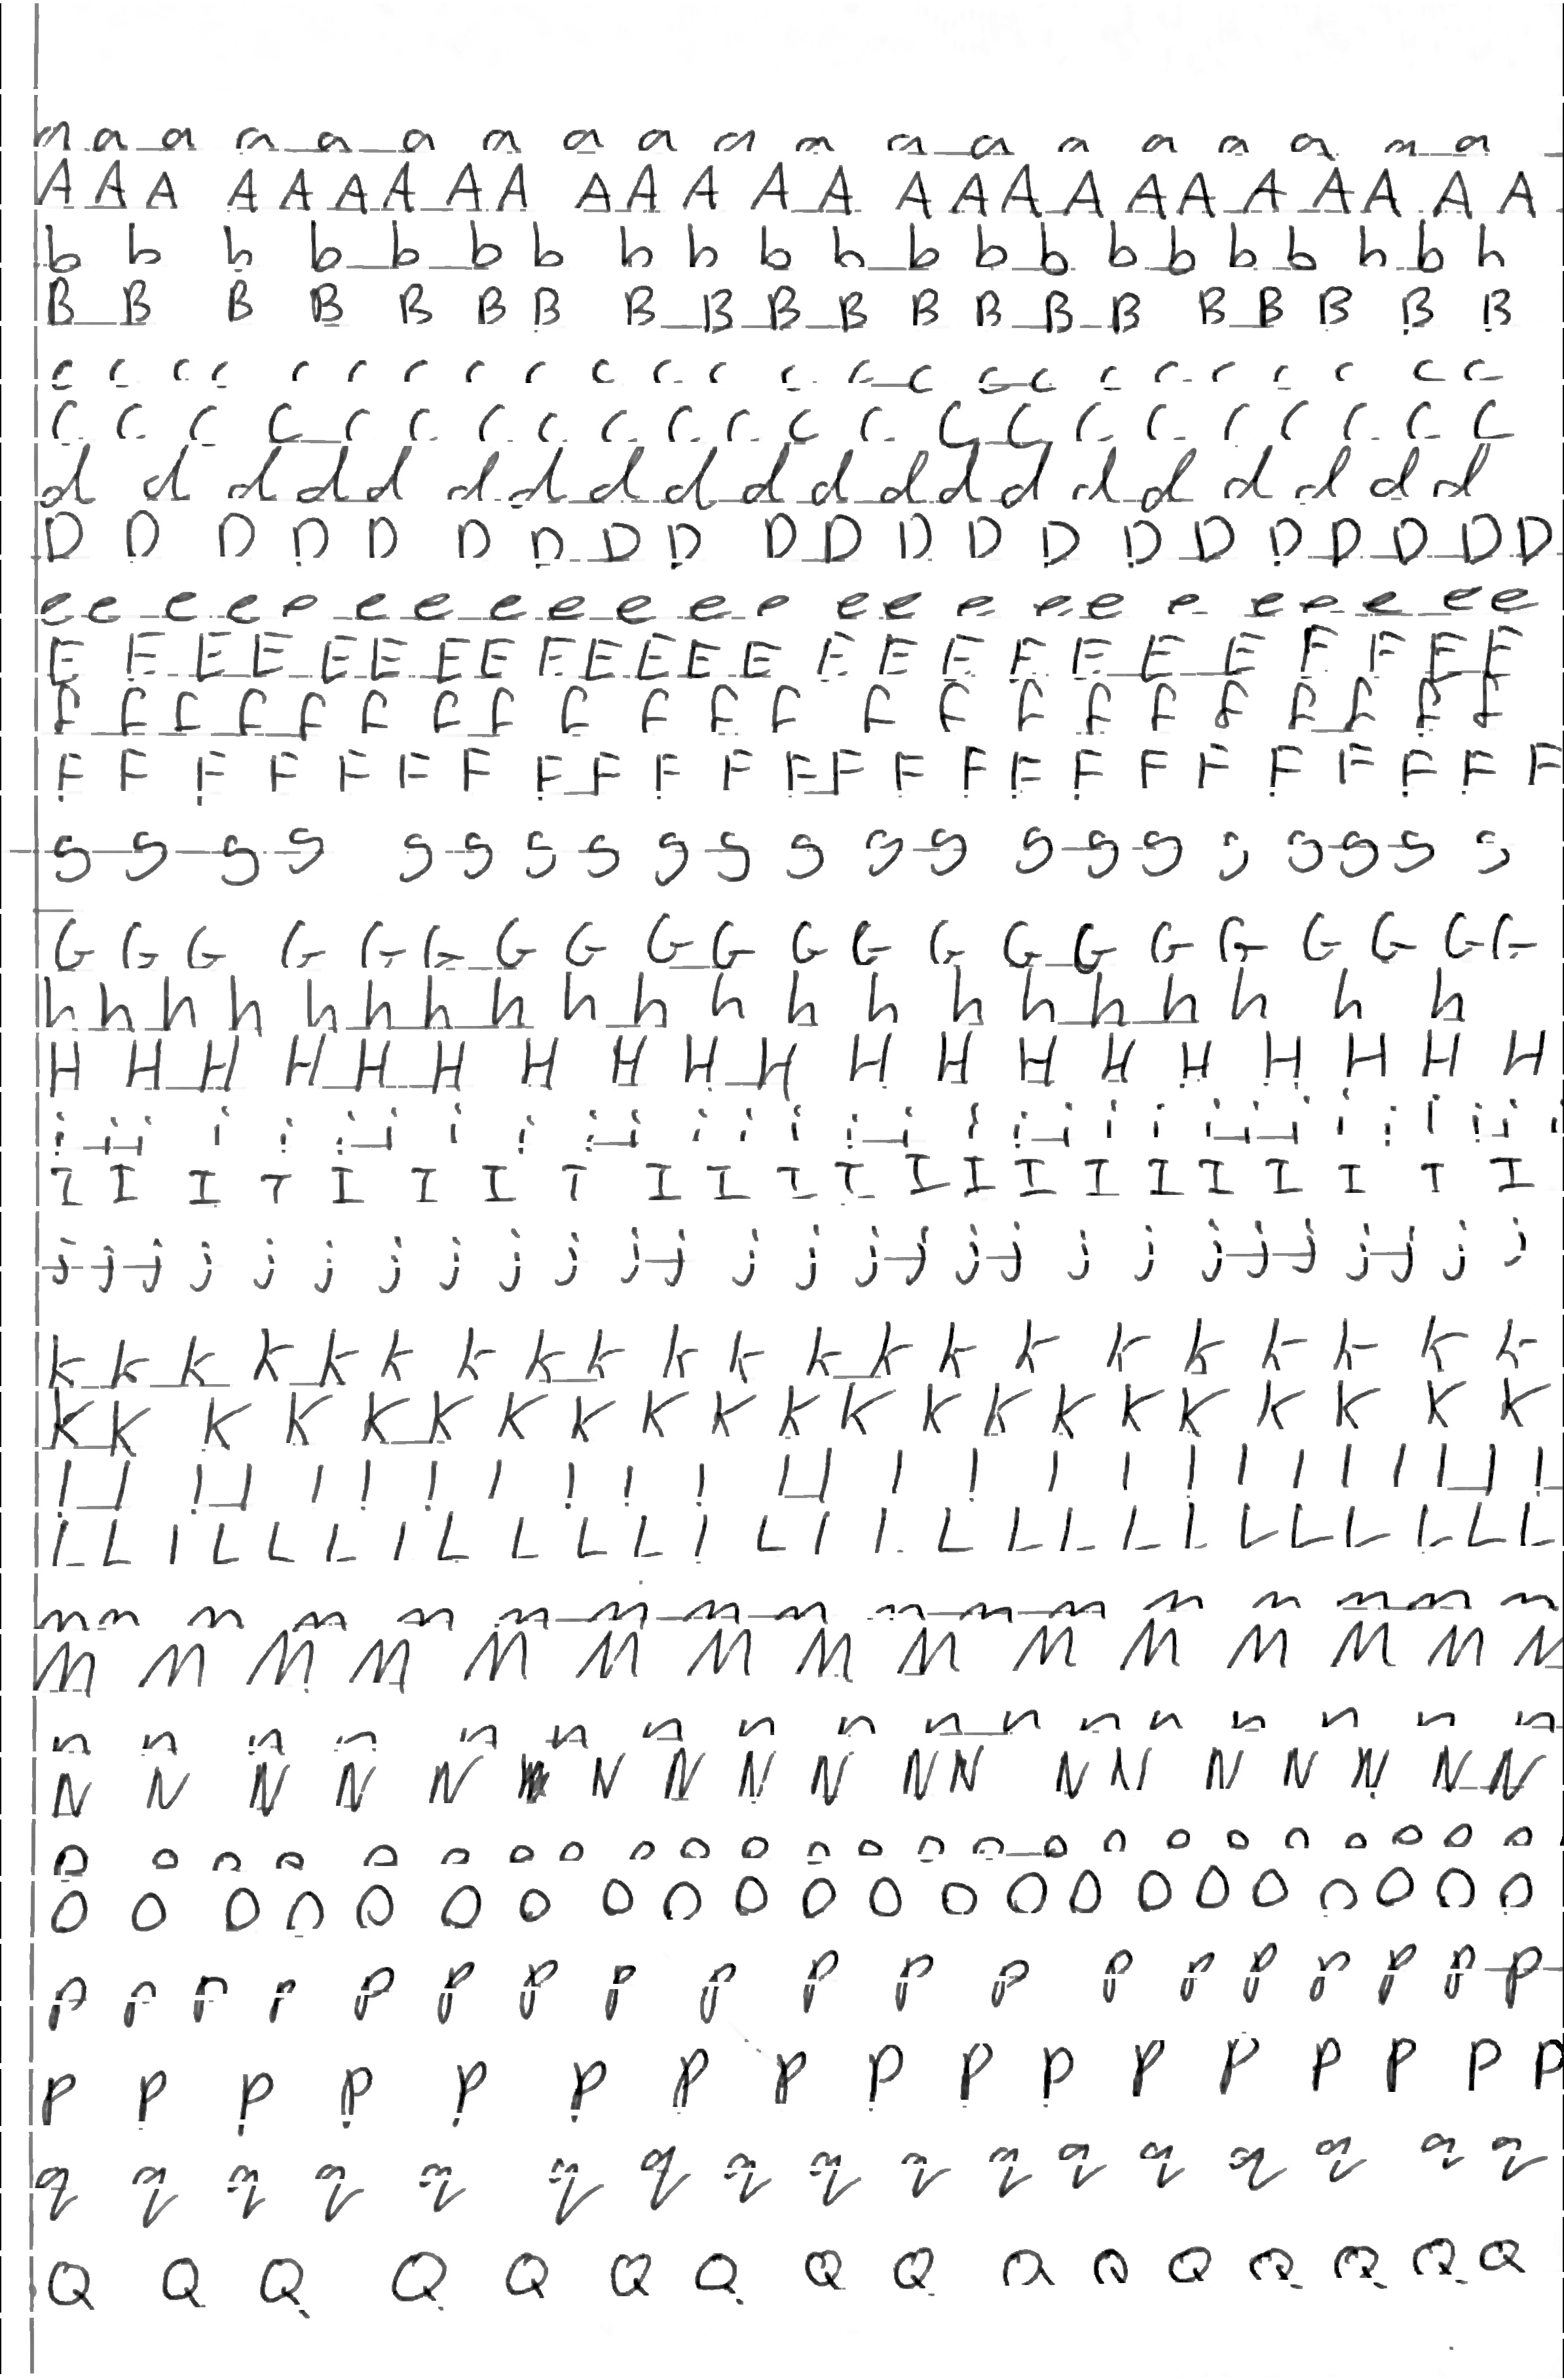 a a a a a a a a a a a a a a a a a a a
A A A A A A A A A A A A A A A A A A A A A A A A
b b b b b b b b b b b b b b b b b b b b b
B B B B B B B B B B B B B B B B B B B B
c c c c c c c c c c c c c c c c c c c c c c c c
C C C C C C C C C C C C C C C C C C C C C C
d d d d d d d d d d d d d d d d d d d d
D D D D D D D D D D D D D D D D D D D D D
e e e e e e e e e e e e e e e e e e e e e e e
E E E E E E E E E E E E E E E E E E E E E E E E
f f f f f f f f f f f f f f f f f f f f f
F F F F F F F F F F F F F F F F F F F F F F F F
g g g g g g g g g g g g g g g g g g g g g
G G G G G G G G G G G G G G G G G G G G G
h h h h h h h h h h h h h h h h h h h h
H H H H H H H H H H H H H H H H H H H
i i i i i i i i i i i i i i i i i i i i i i i i i i i i i
I I I I I I I I I I I I I I I I I I I I I I
j j j j j j j j j j j j j j j j j j j j j j j j j
k k k k k k k k k k k k k k k k k k k k k
K K K K K K K K K K K K K K K K K K K K
l l l l l l l l l l l l l l l l l l l l l l l l l
L L L L L L L L L L L L L L L L L L L L L L L L
m m m m m m m m m m m m m m m m m
M M M M M M M M M M M M M M M
n n n n n n n n n n n n n n n n n
N N N N N N N N N N N N N N N N N N
o o o o o o o o o o o o o o o o o o o o o o o
O O O O O O O O O O O O O O O O O O O O O
p p p p p p p p p p p p p p p p p p p
P P P P P P P P P P P P P P P P P
q q q q q q q q q q q q q q q q q
Q Q Q Q Q Q Q Q Q Q Q Q Q Q Q Q